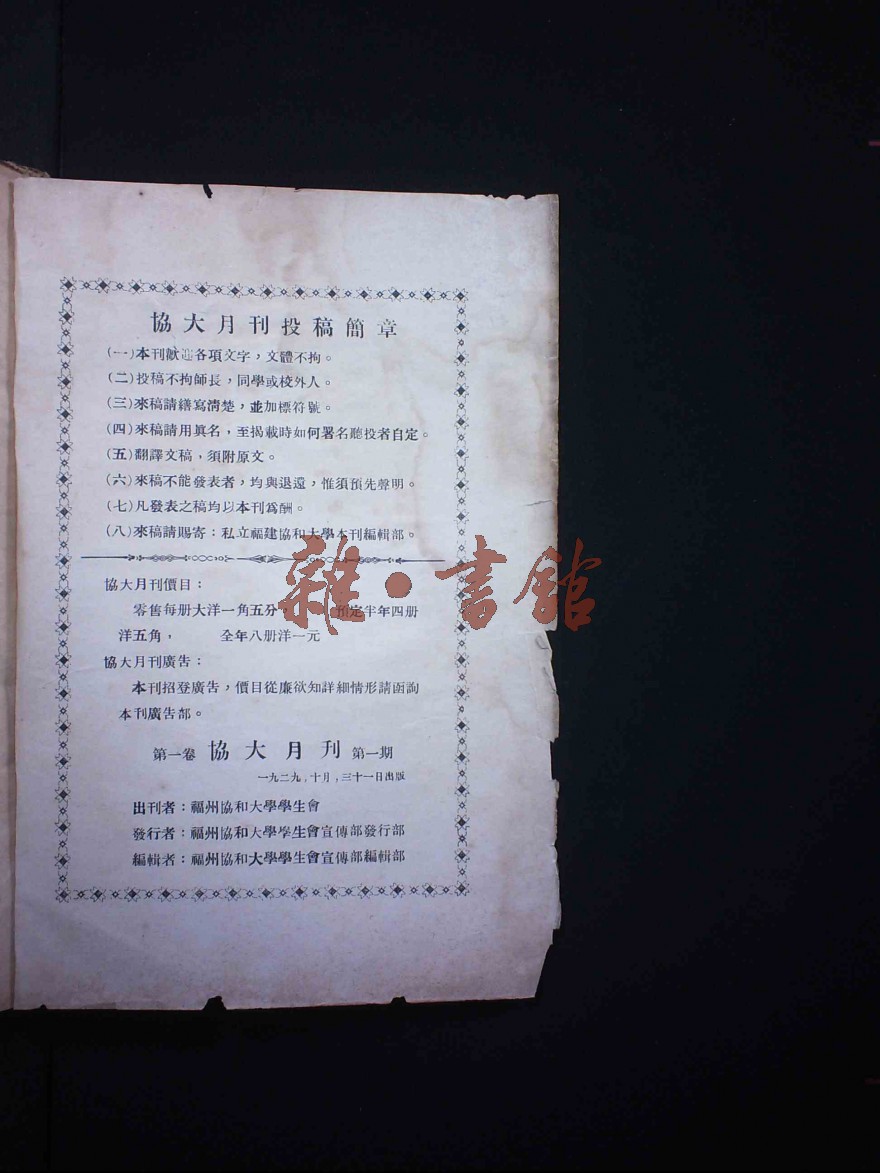 協大月刊投稿簡章
(一)本刊歡迎各項文字，文體不拘。
(二)投稿不拘師長，同學或校外人。
(三)來稿請繕寫清楚，並加標符號。
(四)來稿請用眞名，至揭載時如何署名聽投者自定。
(五)翻譯文稿，須附原文。
(六)來稿不能發表者，均與退還，惟須預先聲明。
(七)凡發表之稿均以本刊爲酬。
(八)來稿請賜寄：私立福建協和大學本刊編輯部。
雜·書館
協大月刊價目：
零售每册大洋一角五分。 預定半年四册
洋五角， 全年八册洋一元
協大月刊廣告：
本刊招登廣告，價目從廉欲知詳細情形請函詢
本刊廣告部。
第一卷 協大月刊 第一期
一九二九，十月，三十一日出版
出刊者：福州協和大學學生會
發行者：福州協和大學學生會宣傳部發行部
編輯者：福州協和大學學生會宣傳部編輯部